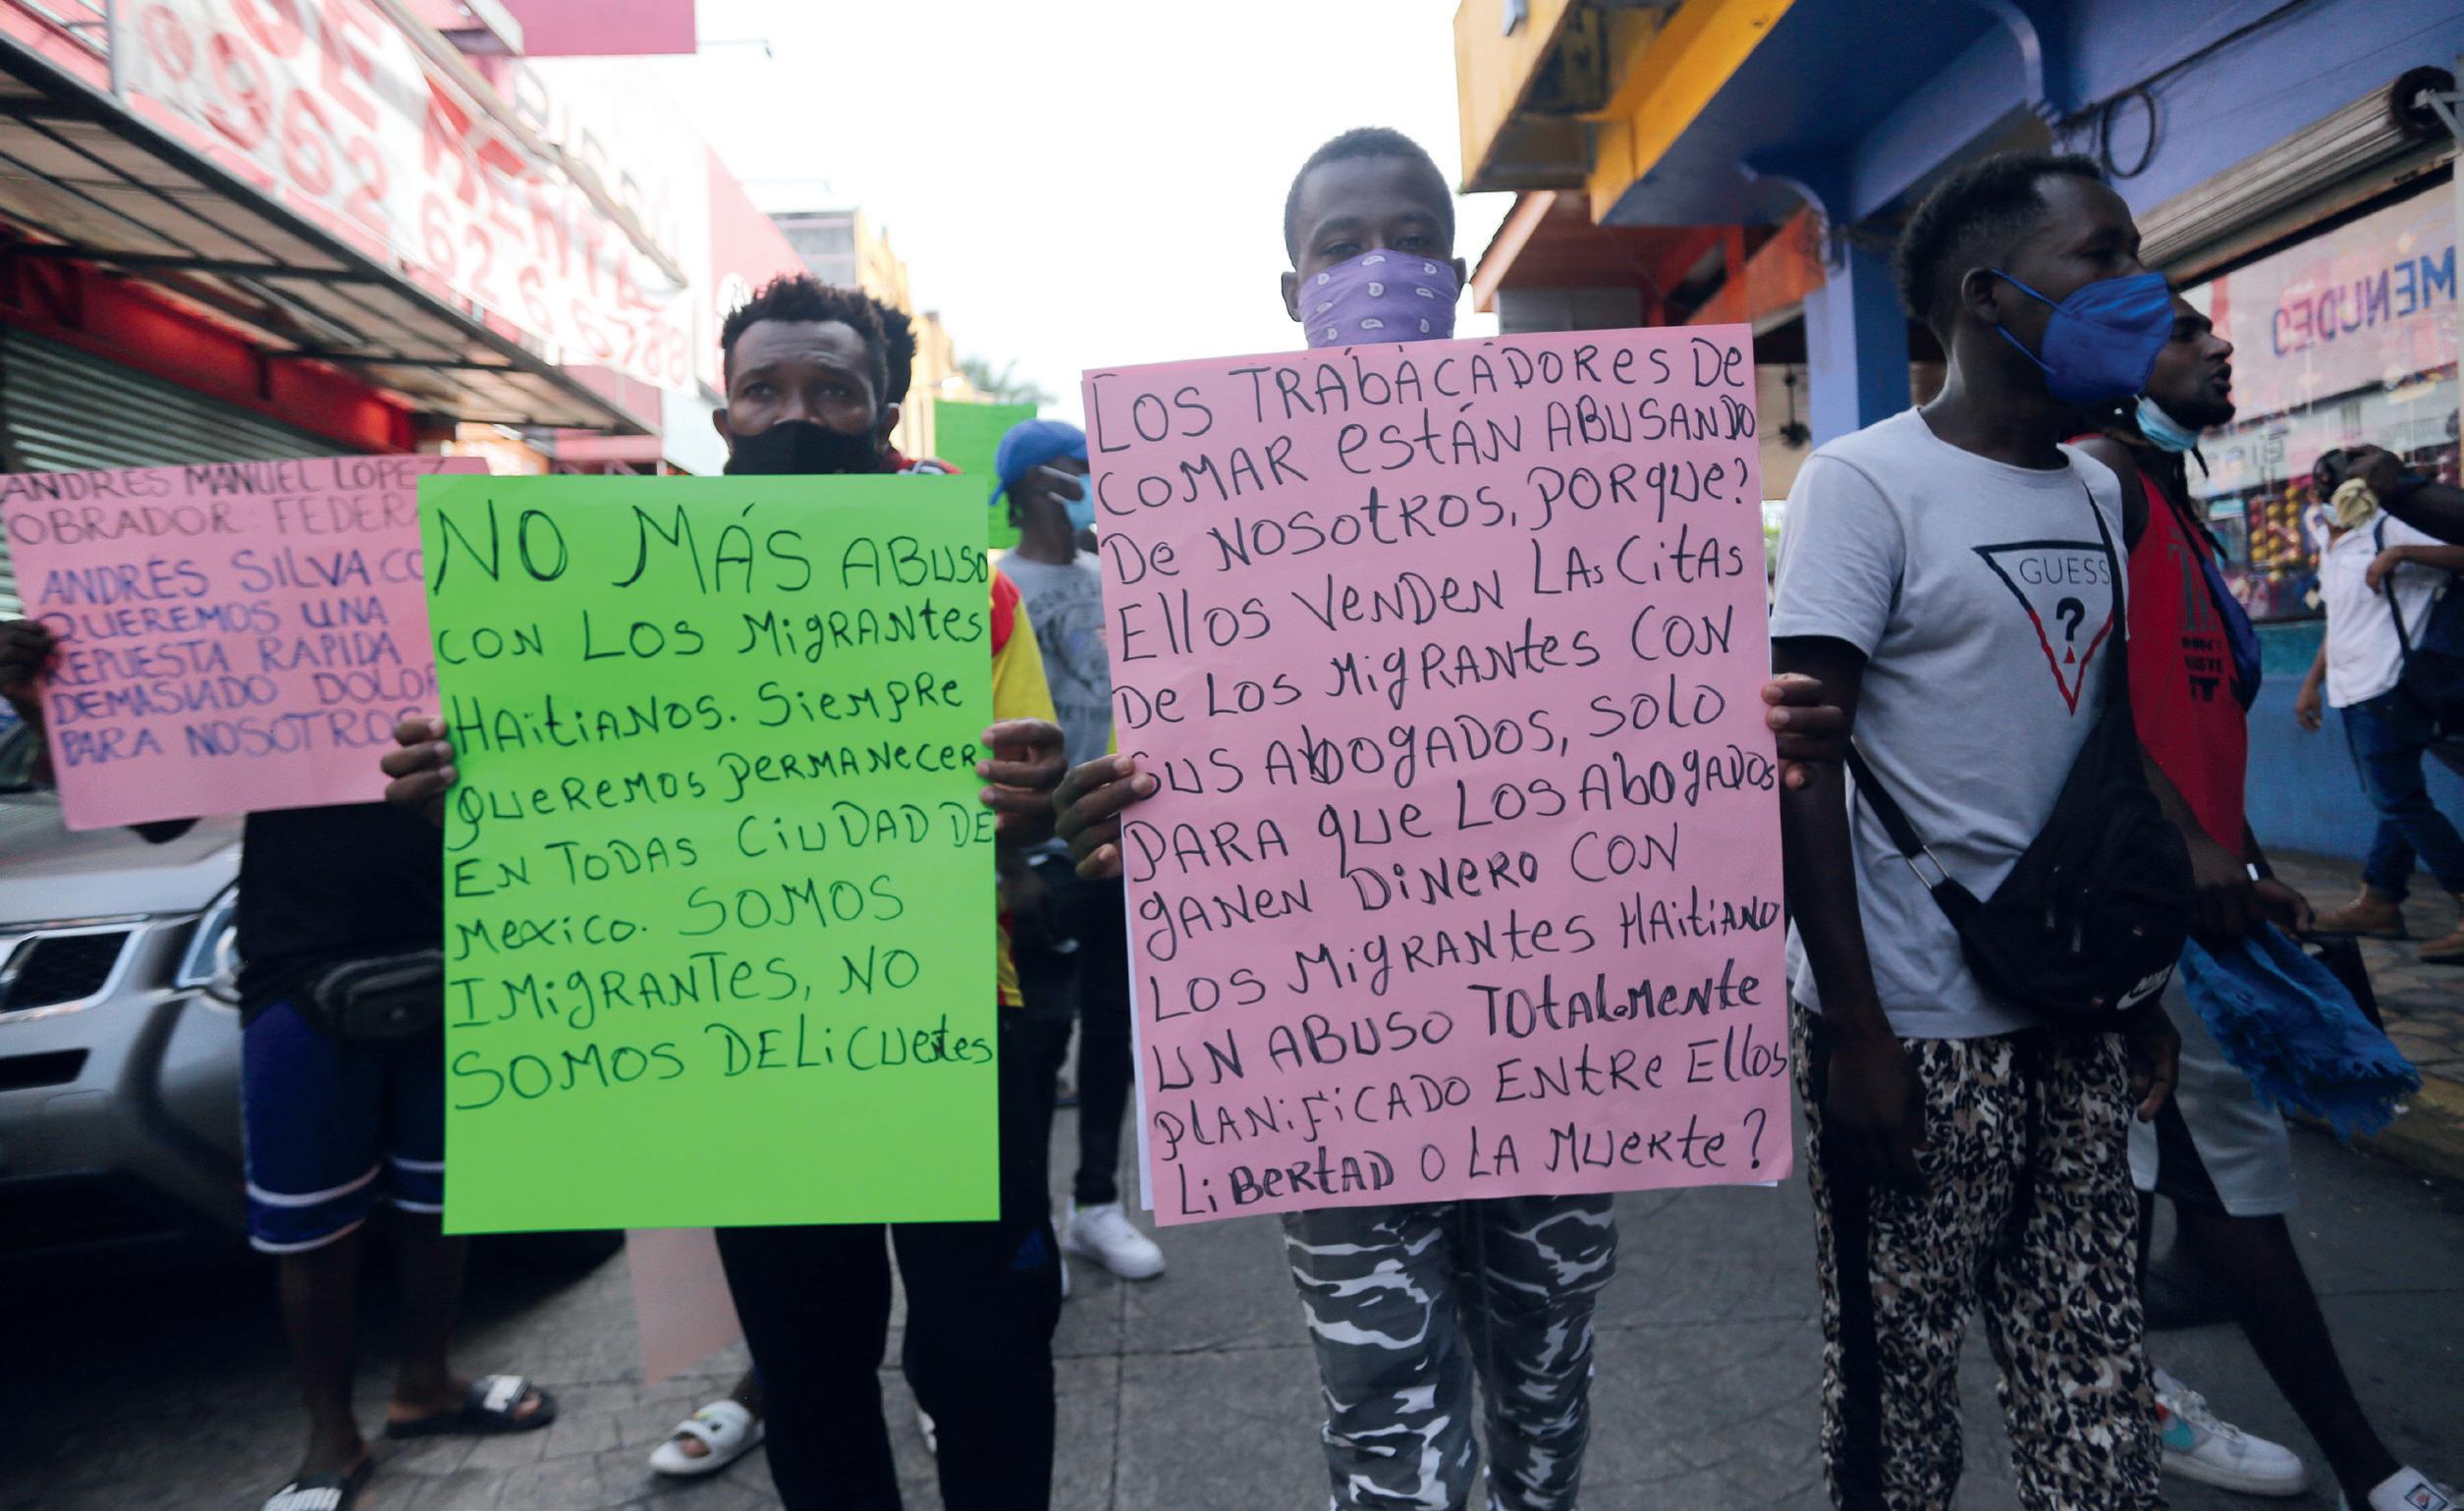 ANDRÉS MANUEL LOPEZ
OBRADOR FEDERA
ANDRÉS SILVA CO
QUEREMOS UNA
REPUESTA RAPIDA
DEMASIADO DOLOR
PARA NOSOTROS
NO MÁS ABUSO
CON LOS MigRANtes
HAitiANOS. SieMpRe
queReMOS peRMANeceR
EN TODAS CiUDAD DE
Mexico. SOMOS
IMigRANTes, NO
SOMOS DELiCUetes
LOS TRAbACADORes De
COMAR estÁN ABUSANDO
De NOSOtROS, pORque?
EllOS VeNDeN LAs CitAs
De LOS MigRANtes CON
SUS AbOgADOS, SOlO
pARA que LOS AbOgADOs
gANeN DiNeRO CON
LOS MigRANtes HAitiANO
UN ABUSO TOtALMeNte
plANiFiCADO ENtRe EllOs
LiBeRtAD O LA MUeRte?
GUESS
?
MENUDEO